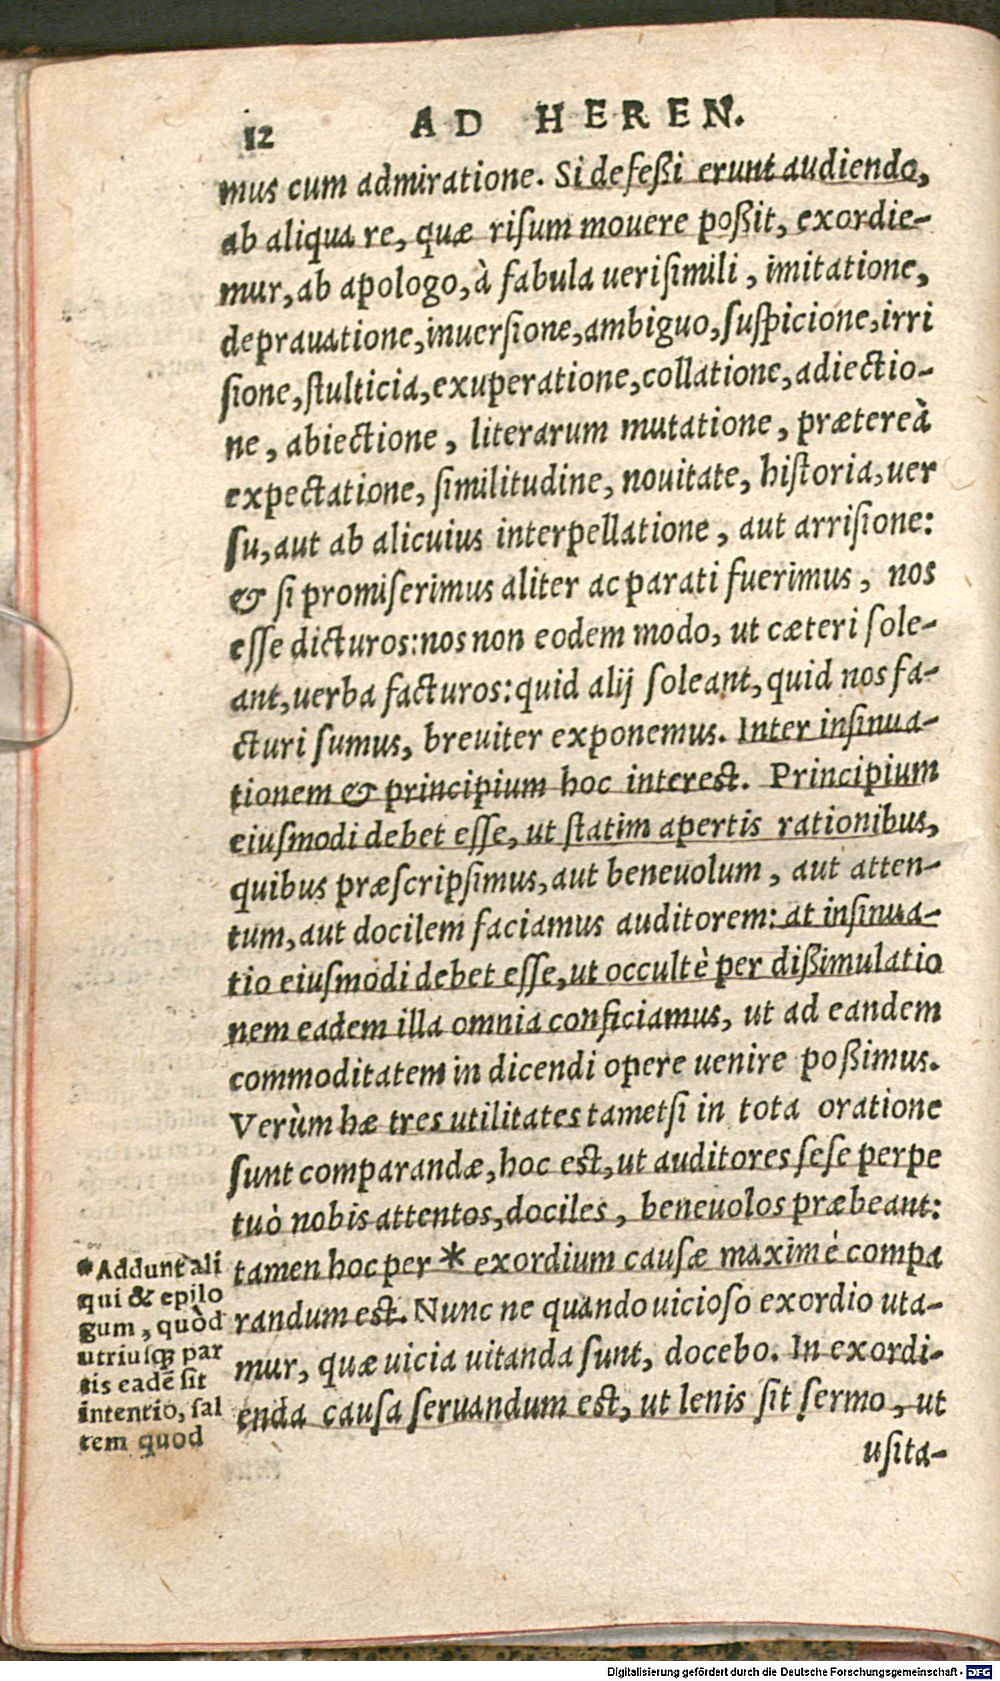 12 AD HEREN.
mus cum admiratione. Si defeßi erunt audiendo,
ab aliqua re, quæ risum mouere poßit, exordie-
mur, ab apologo, à fabula uerisimili, imitatione,
deprauatione, inuersione, ambiguo, suspicione, irri
sione, stulticia, exuperatione, collatione, adiectio-
ne, abiectione, literarum mutatione, prætereà
expectatione, similitudine, nouitate, historia, uer
su, aut ab alicuius interpellatione, aut arrisione:
& si promiserimus aliter ac parati fuerimus, nos
esse dicturos: nos non eodem modo, ut cæteri sole-
ant, uerba facturos: quid alij soleant, quid nos fa-
cturi sumus, breuiter exponemus. Inter insinua-
tionem & principium hoc interest. Principium
eiusmodi debet esse, ut statim apertis rationibus,
quibus præscripsimus, aut beneuolum, aut atten-
tum, aut docilem faciamus auditorem: at insinua-
tio eiusmodi debet esse, ut occultè per dißimulatio
nem eadem illa omnia conficiamus, ut ad eandem
commoditatem in dicendi opere uenire poßimus.
Verùm hæ tres utilitates tametsi in tota oratione
sunt comparandæ, hoc est, ut auditores sese perpe
tuò nobis attentos, dociles, beneuolos præbeant:
tamen hoc per * exordium causæ maximè compa
randum est. Nunc ne quando uicioso exordio uta-
mur, quæ uicia uitanda sunt, docebo. In exordi-
enda causa seruandum est, ut lenis sit sermo, ut
usita-
*Addunt ali
qui & epilo
gum, quòd
utriusq; par
tis eadē sit
intentio, sal
tem quod
Digitalisierung gefördert durch die Deutsche Forschungsgemeinschaft - DFG